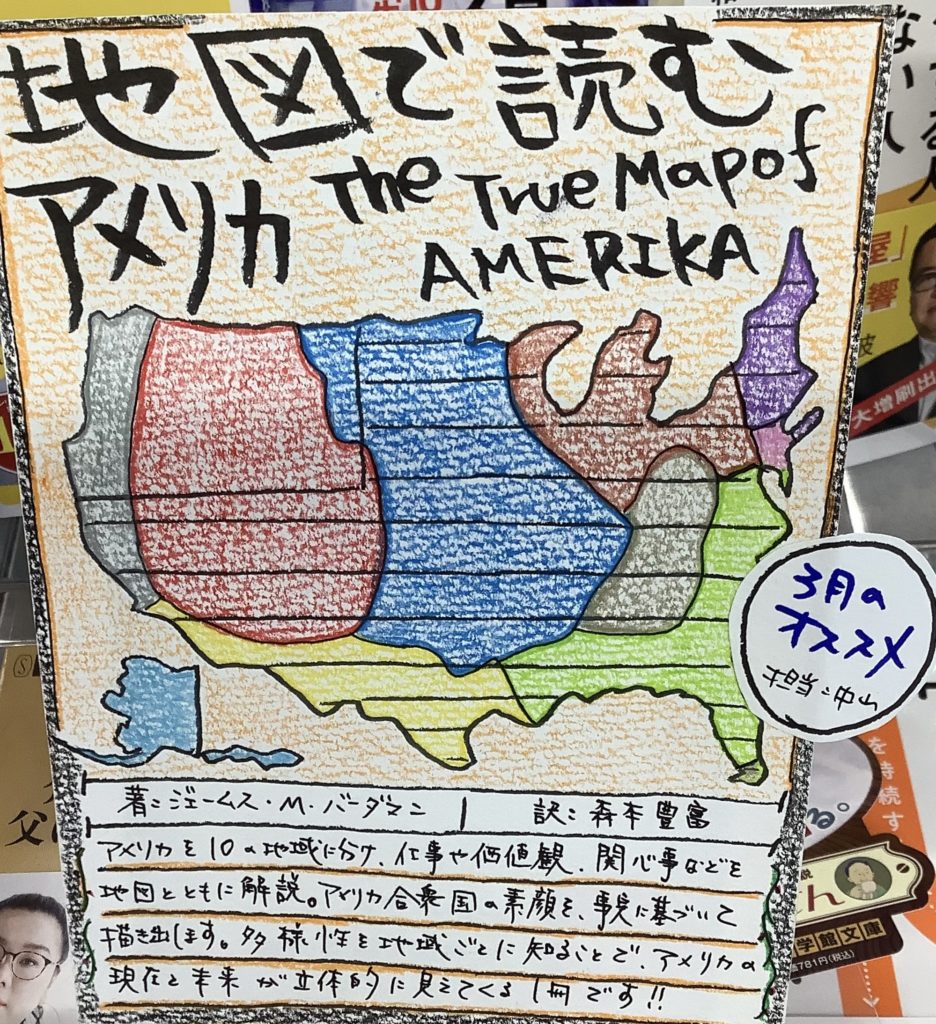 地図で読む
アメリカ The True Map of
AMERIKA
3月の
オススメ
担当:中山
著:ジェームス・M・バーダマン
訳:森本豊富
アメリカを10の地域に分け、仕事や価値観、関心事などを
地図とともに解説。アメリカ合衆国の素顔を、事実に基づいて
描き出します。多様性を地域ごとに知ることで、アメリカの
現在と未来が立体的に見えてくる1冊です!!
大増刷出
響
を持続す
学館文庫
781円(税込)
父